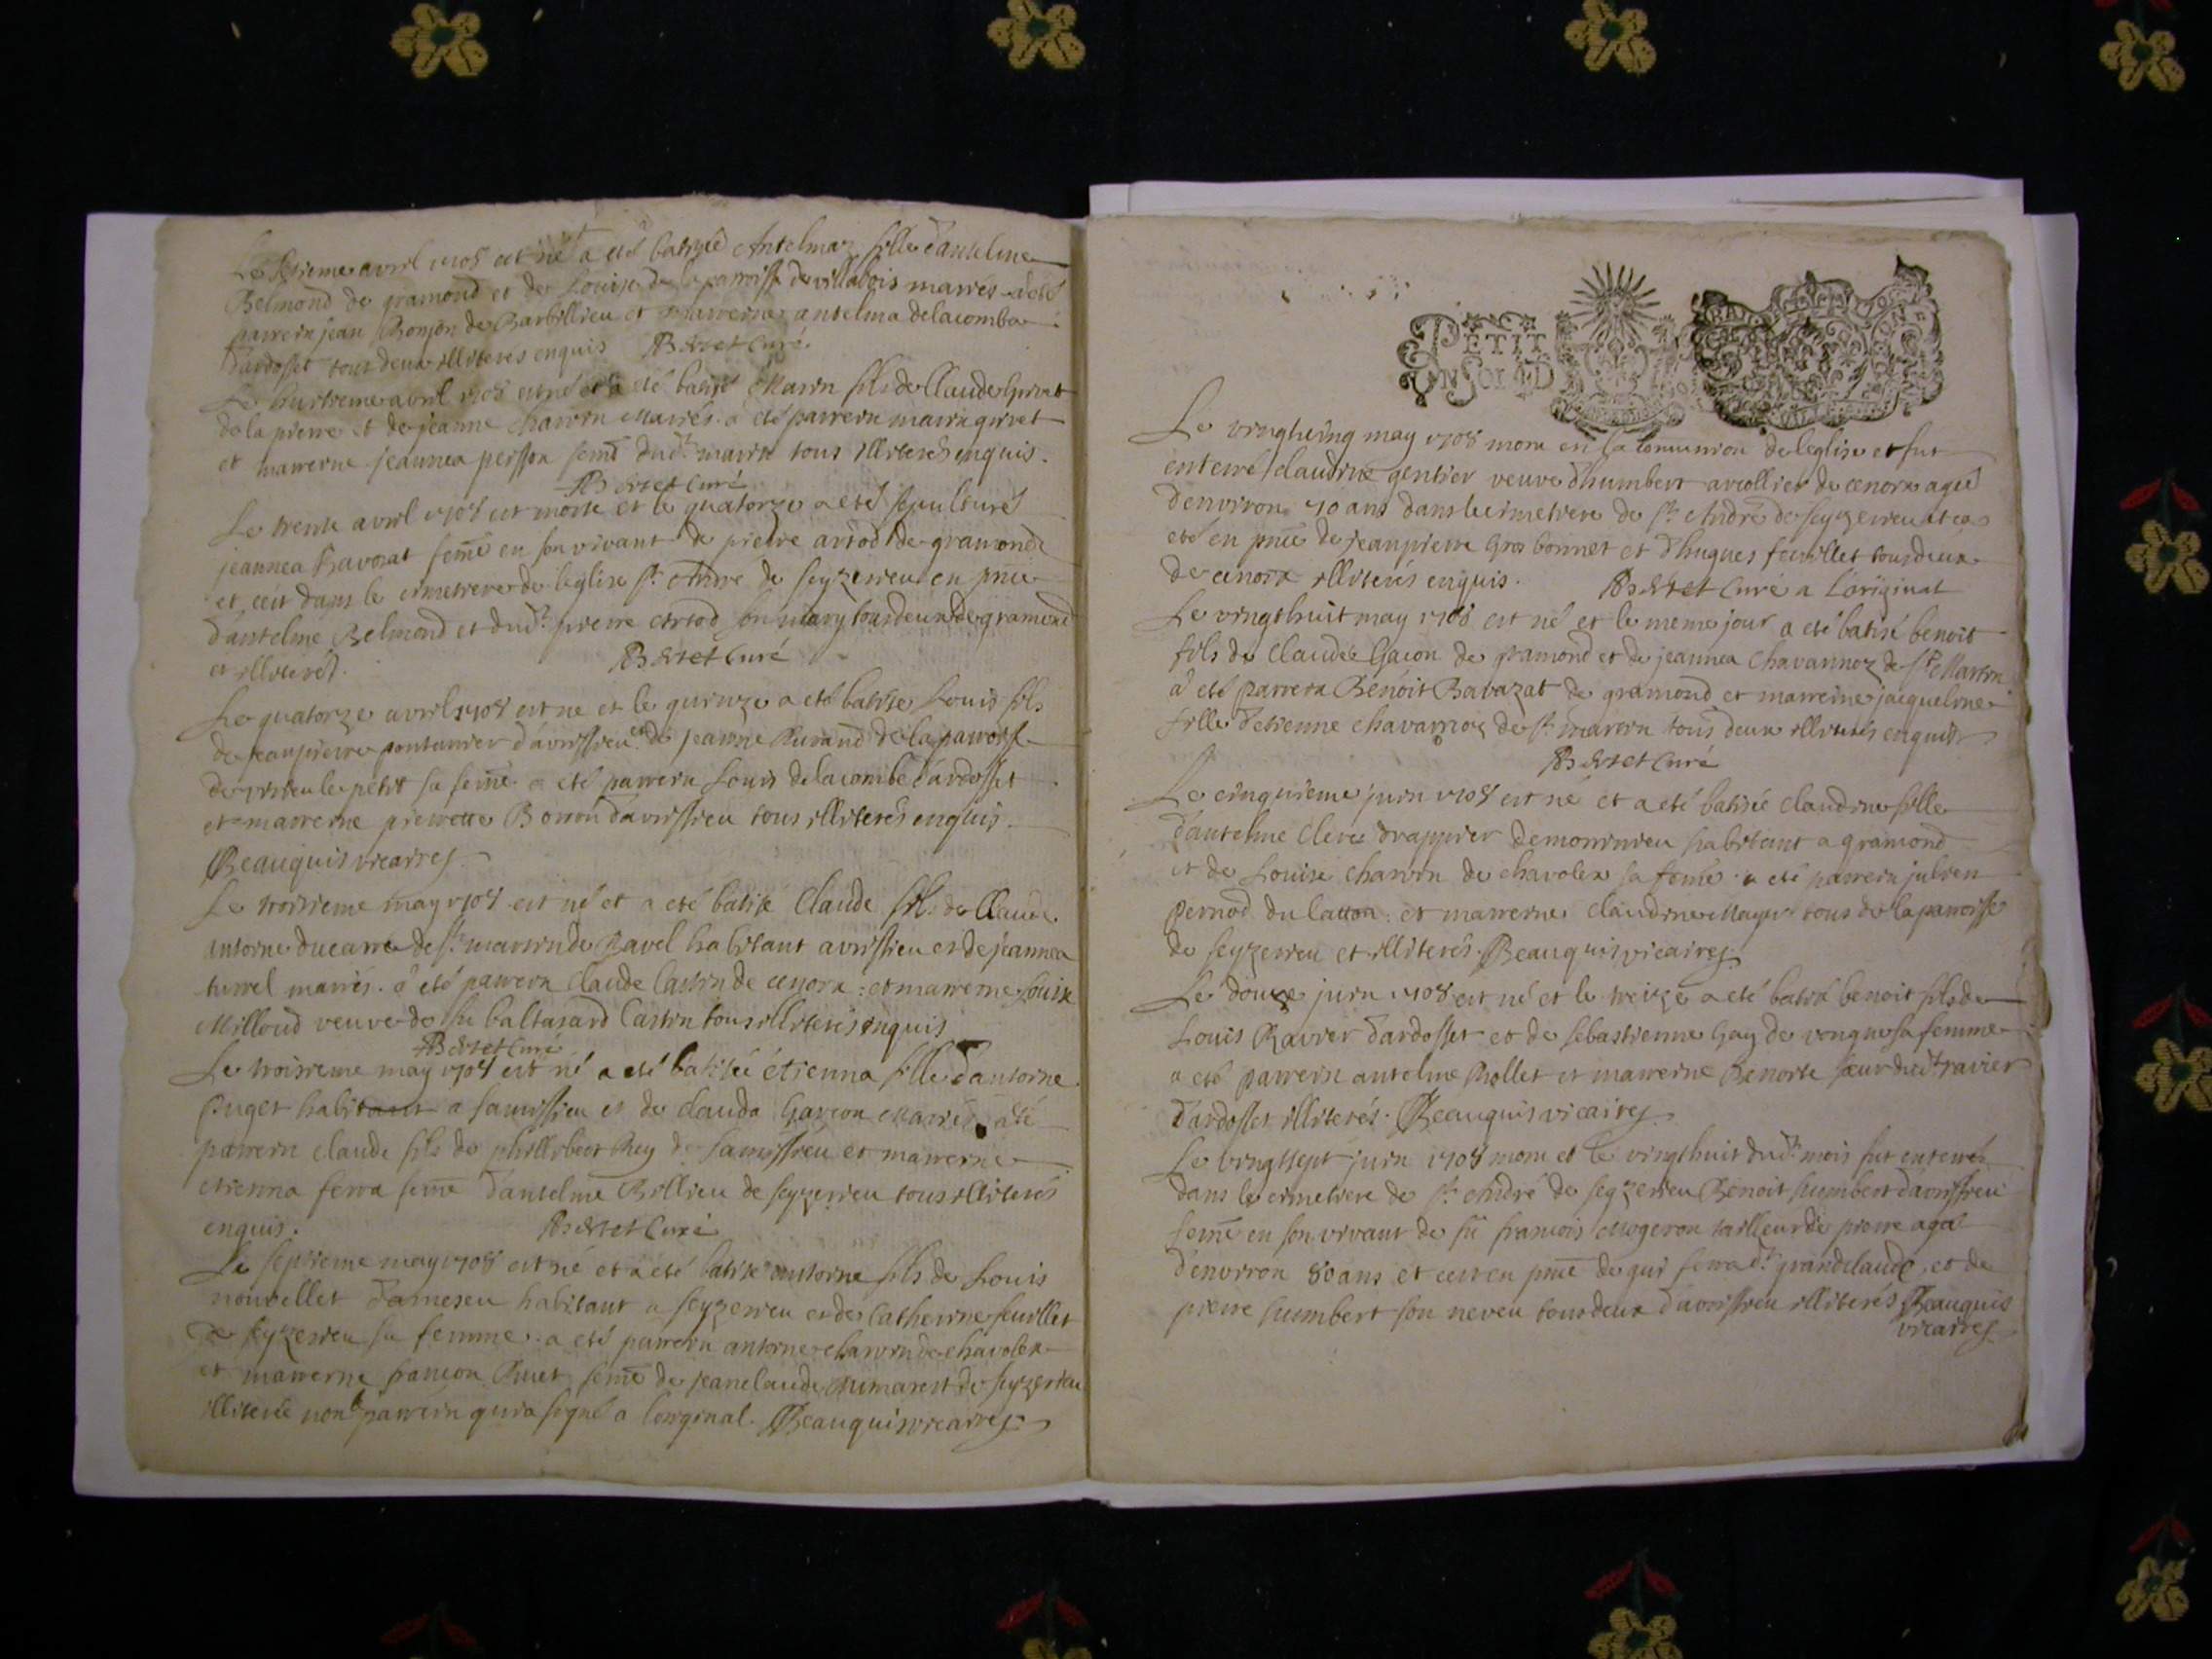 Le sixieme avril 1708 est né a eté batizeé Antelmaz fille d'antelme
Belmond de gramond et de Louise de la paroisse de villabois mariés a eté
parrein jean Bonjon de Barbillieu et marreine antelma delacombe
d'ardosset tous deux illiterés enquis Bertet Curé
Le huitieme avril 1708 est né et a eté batisé Marin fils de Claude Grivet
de la pierre et de jeanne Charvin Mariés a eté parrein marin grivet
et marreine jeannea persson feme dud.t marin tous illiterés enquis.
Bertet Curé
Le treize avril 1708 est morte et le quatorze a eté sepulturé
jeannea Ravozat feme en son vivant de pierre artod de gramond
et ceit dans le cimetiere de leglise St. Andre de seyzerieu en pnce
d'antelme Belmond et dud.t pierre artod son mary tous deux de gramond
et illiterés. Bertet Curé
Le quatorze avril 1708 est né et le quinze a eté batisé Louis fils
de jeanpierre pontannier d'avrissieu et de jeanne Durand de la paroisse
de virieu le petit sa feme a eté parrein Louis delacombe d'ardosset
et marreine pierrette Bonon d'avrissieu tous illiterés enquis.
Beauquis vicaires
Le troisieme may 1708 est né et a eté batisé Claude fils de Claude
antoine ducarre de St. martin de Bavel habitant avrissieu et de jeannea
turrel mariés. a eté parrein Claude Castin de cenora : et marreine Louise
Milloud veuve de fu baltasard Castin tous illiterés enquis
Bertet Curé
Le troisieme may 1708 est né a eté batisée étienna fille d'antoine
Puget habitant a samissieu et de clauda Garcon Mariés a eté
parrein claude fils de phillibert Rey de samissieu et marreine
etienna serra feme d'antelme Billieu de seyzerieu tous illiterés
enquis. Bertet Curé
Le septieme may 1708 est né et a eté batisé antoine fils de Louis
nouvellet d'ameseu habitant a seyzerieu et de Catherine feuillet
de seyzerieu sa femme. a eté parrein antoine charvin de chavolex
et marreine francon Rivet feme de jeanclaude Humarest de seyzerieu
illiterée non le parrein qui a signé a loriginal. Beauquis vicaires
PETIT
UN SOL LE D
Le vingtcinq may 1708 mort en la comunion de leglise et fut
enterré Claudine gentier veuve d'humbert arcollier de cenora ageé
d'environ 70 ans dans le cimetiere de St. André de seyzerieu et ca
eté en pnce de jeanpierre Gros bonnet et d'hugues feuillet tous deux
de cenora illiterés enquis. Bertet Curé a l'original
Le vingthuit may 1708 est né et le meme jour a eté batisé benoit
fils de Claude Gacon de gramond et de jeannea Chavannoz de St. Martin
a eté Parrein Benoit Bavazat de gramond et marreine jacqueline
fille d'etienne Chavannoz de St. martin tous deux illiterés enquis
Bertet Curé
Le cinquieme juin 1708 est né et a eté batisée claudine fille
d'antelme Clere drappier de montvieu habitant a gramond
et de Louise charvin de chavolex sa feme. a eté parrein julien
pernod du latton. et marreine claudine Mayet tous de la paroisse
de seyzerieu et illiterés. Beauquis vicaires
Le douze juin 1708 est né et le treize a eté batisé benoit fils de
Louis Ravier d'ardosset et de sebastienne Gay de vongne sa femme
a eté parrein antelme Mollet et marreine Benoite sœur dud.t ravier
d'ardosset illiterés. Beauquis vicaires
Le vingtsept juin 1708 mort et le vingthuit dud.t mois fut enterré
dans le cimetiere de St. André de seyzerieu Benoit humbert d'avrissieu
feme en son vivant de fu francois Mogeron tailleur de pierre agée
d'environ 80 ans et ceit en pnce de gui serra dt. grandclaude, et de
pierre humbert son neveu tous deux d'avrissieu illiterés Beauquis
vicaires